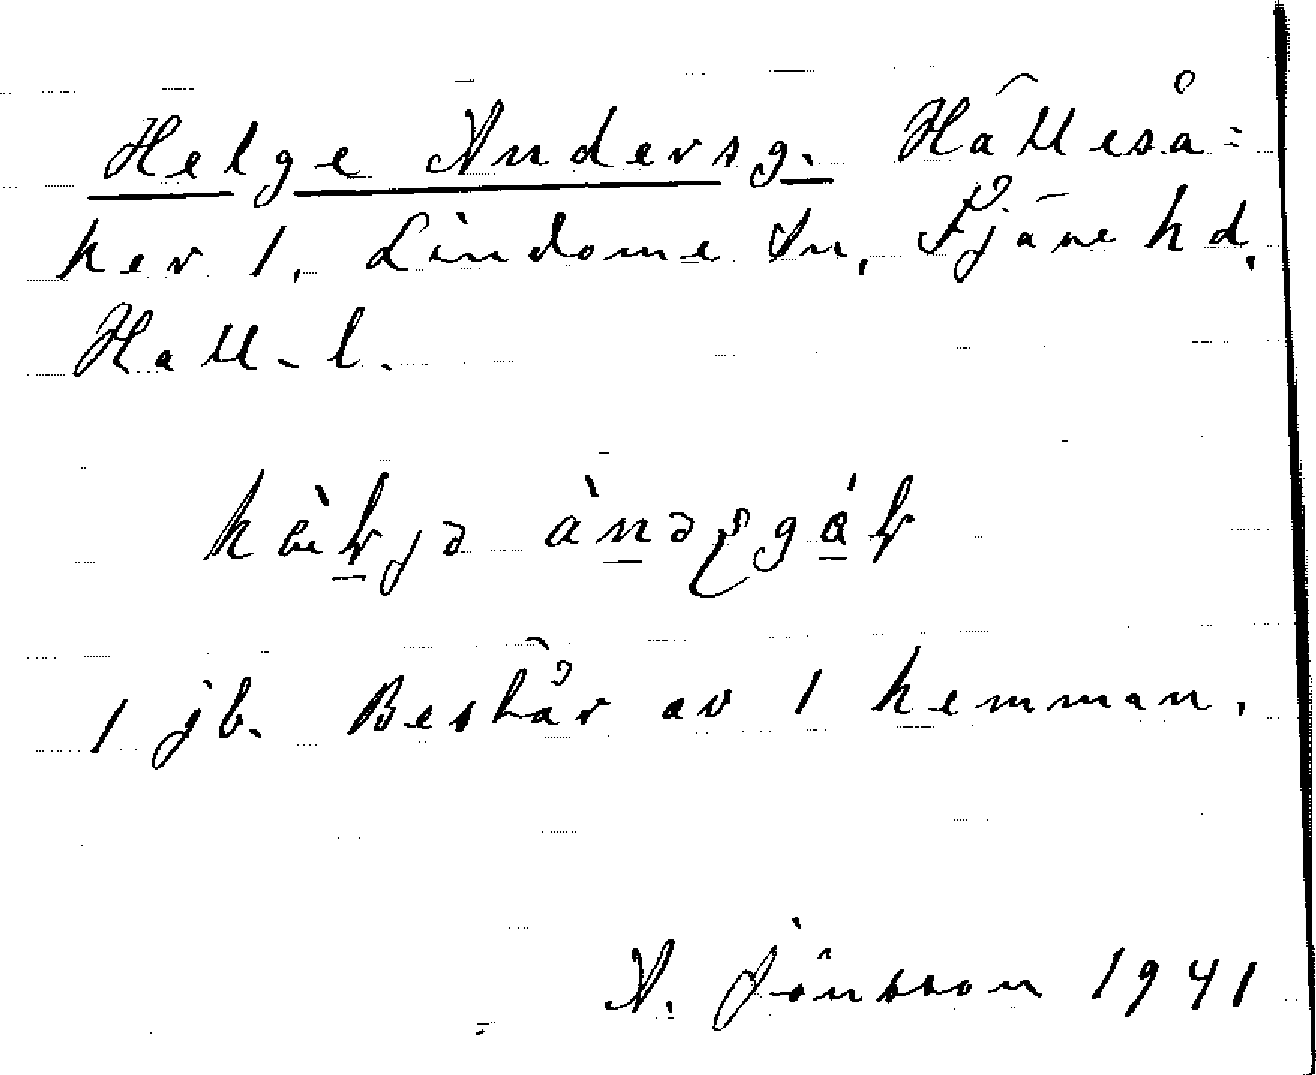 Helge Andersg. Hälleså=
ker 1, Lindome sn, Fjäre hd,
Hall. l.
1 jb. Består av 1 hemman.
A. Jönsson 1941